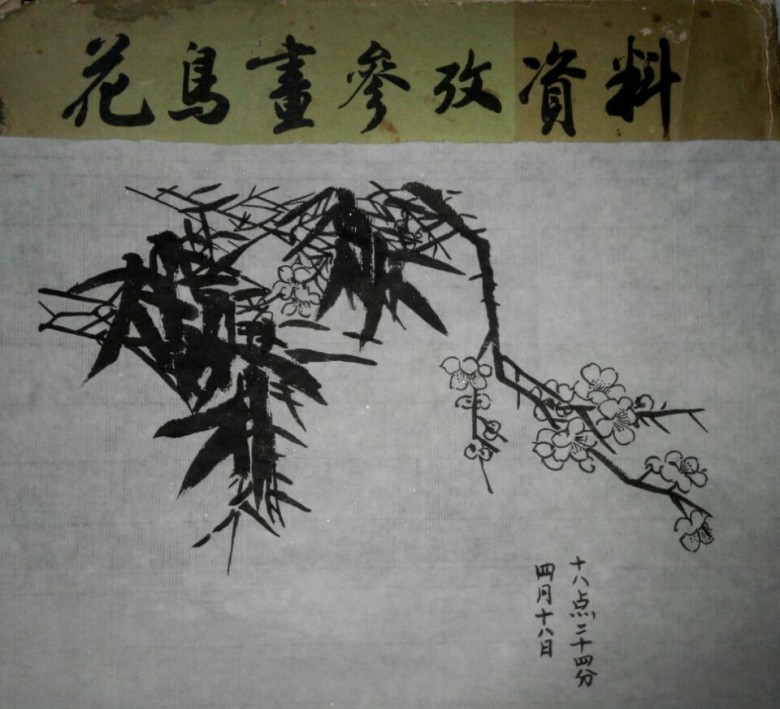 花鳥畫參攷資料
十八点二十四分
四月十八日